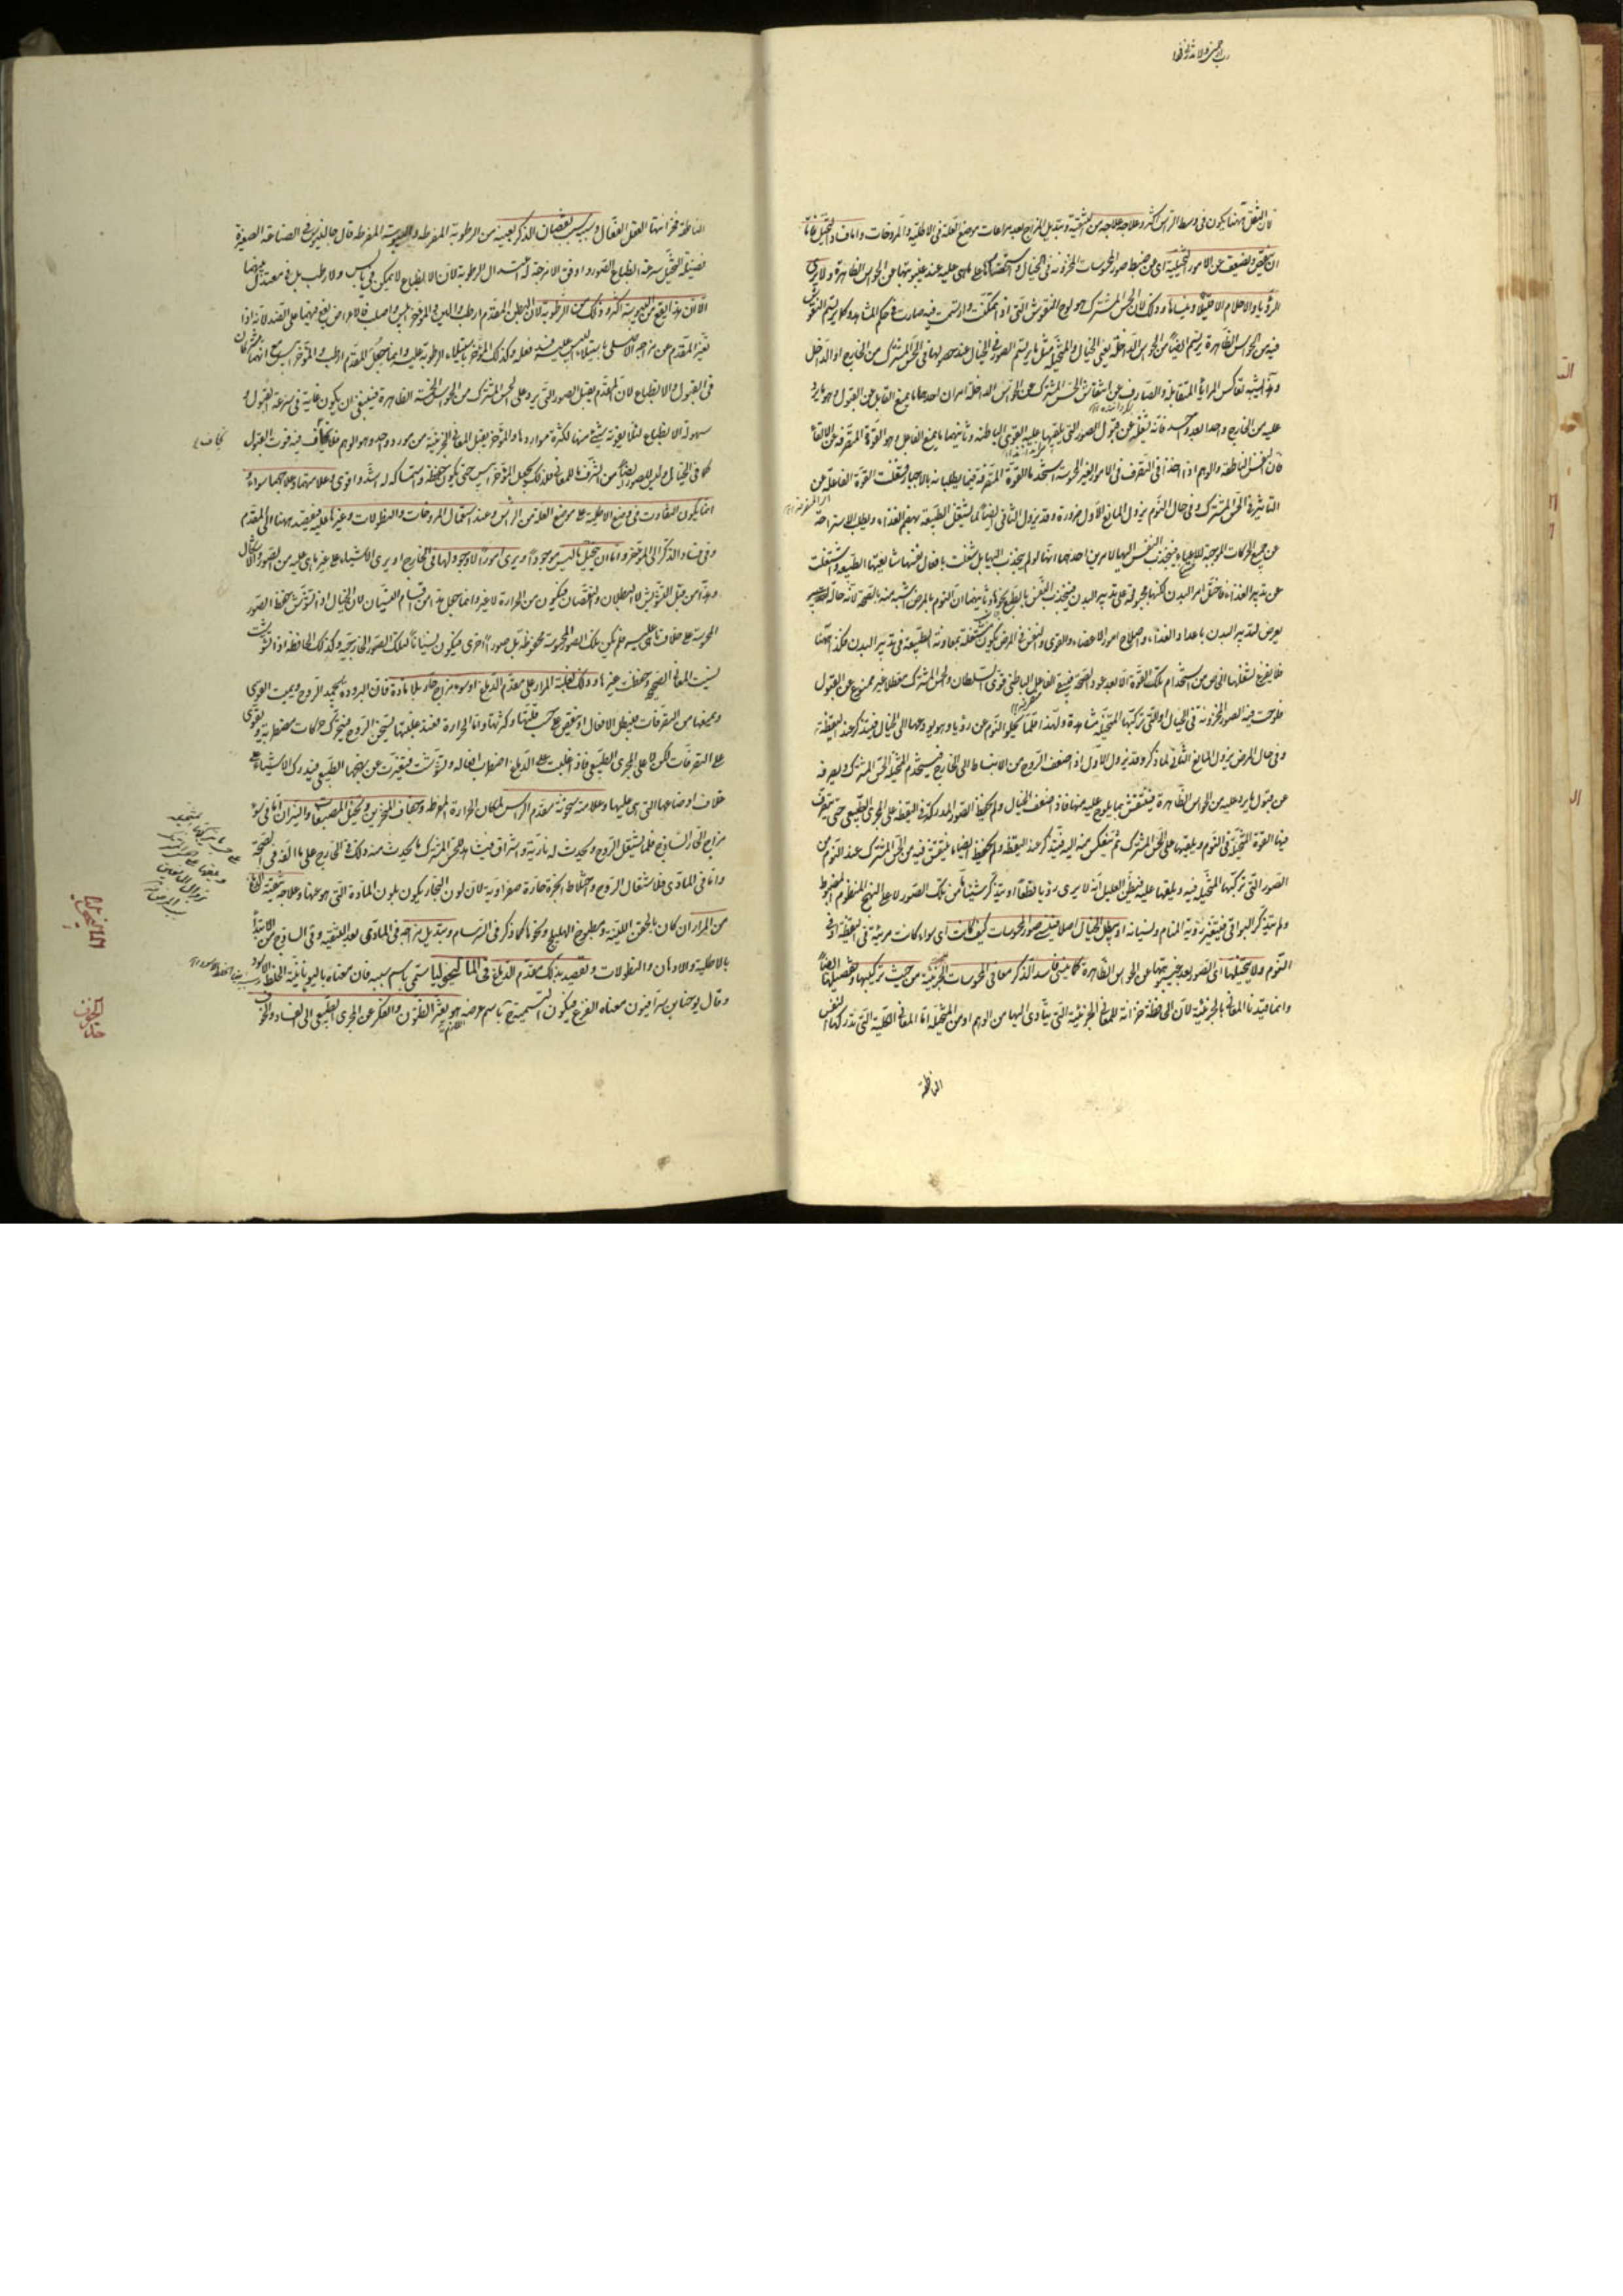 فان الثقل ههنا يكون فى وسط الراس اكثر وعلاجه علاجه من التنقية وتبديل المزاج بعد مراعات موضع العلة فى الاطلية والمروخات واما فساد التخيل فاما
ان ينقص ويضعف عن الامور التخيلية اى عن ضبط صور المحسوسات المخزونة فى الخيال على ما هى عليه عند غيبوبتها عن الحواس الظاهرة ولا يرى
الرؤيا والاحلام الا قليلا وينساها وذلك لان الحس المشترك هو لوح النقوش التى اذا تمكنت وارتسمت فيه صارت فى حكم المشاهد وكما يرتسم النقوش
فيه من الحواس الظاهرة يرتسم ايضا من الحواس الداخلة يعنى الخيال والمتخيلة مثل ما يرتسم الصور فى الخيال عند حصولها فى الحس المشترك من الخارج او الداخل
وهذا يشبه تعاكس المرايا المتقابلة والصارف عن انتقاش الحس المشترك عن الحواس الداخلة امران احدهما ما يمنع القابل عن القبول وهو ما يرد
عليه من الخارج فانه يشغله عن قبول الصور التى يلقيها عليه القوى الباطنة وثانيهما ما يمنع الفاعل وهو القوة المتصرفة عن الالقاء
فان النفس الناطقة والوهم اذا اخذا فى التصرف فى الامور الغير المحسوسة استخدما القوة المتصرفة فيما يطلبانه بالاجبار فشغلت القوة الفاعلة عن
التاثير فى الحس المشترك وفى حال النوم يزول المانع الاول ضرورة وقد يزول الثانى ايضا لما يشتغل الطبيعة بهضم الغذاء وبطلب الاستراحة
عن جميع الحركات الموجبة للاعياء فينجذب النفس اليها لامرين احدهما انها لو لم ينجذب اليها بل شغلت بافعال نفسها شايعتها الطبيعة واشتغلت
عن تدبير الغذاء فاختل امر البدن لكنها مجبولة على تدبير البدن فتنجذب بالطبع نحوها وثانيهما ان النوم بالمرض اشبه منه بالصحة لانه حالة
يعرض لتدبير البدن باعداد الغذاء واصلاح امور الاعضاء والقوى والنفس فى المرض يكون مشتغلة بمعاونة الطبيعة فى تدبير البدن فكذا ههنا
فلا يفرغ لشغلها الخاص من استخدام تلك القوة الا بعد عود الصحة فيبقى الفاعل الباطنى قوى السلطان والحس المشترك معطلا غير ممنوع عن القبول
فلوحت فيه الصور المخزونة فى الخيال او التى تركبها المتخيلة مشاهدة ولهذا قلما يخلو النوم عن رؤيا وهو يودعها الى الخيال فيتذكر عند اليقظة
وفى حال المرض يزول المانع الثانى لما ذكر وقد يزول الاول اذا ضعف الروح من الانبساط الى الخارج فيستخدم المتخيلة الحس المشترك ويصرفه
عن قبول ما يرد عليه من الحواس الظاهرة فينتقش بما يلوح عليه منها فاذا ضعف الخيال ولم يحفظ الصور المدركة فى اليقظة على المجرى الطبيعى حتى يتصرف
فيها القوة المتخيلة فى النوم ويلقيها على الحس المشترك ثم ينعكس منه اليه فيتذكر عند اليقظة ولم يحفظ ايضا ما ينتقش فيه من الحس المشترك عند النوم من
الصور التى تركبها المتخيلة فيه ويلقيها عليه فيظن العليل انه لا يرى رؤيا قطعا او يتذكر شيئا من تلك الصور لا على النهج المنظوم المضبوط
ولم يتذكر البواقى فيتغير رؤية المنام ونسيانه او يبطل الخيال اصلا فينسى صور المحسوسات كيف كانت اى سواء كانت مرئية فى اليقظة او فى
النوم ولا يتخيلها اى الصور بعد غيبتها عن الحواس الظاهرة كما ينسى فاسد الذكر معانى المحسوسات الجزئية من حيث تركيبها وتفصيلها ايضا
وانما قيدنا المعانى بالجزئية لان الحافظة خزانة للمعانى الجزئية التى يتادى اليها من الوهم او من المتخيلة اما المعانى الكلية التى تدركها النفس
الناطقة
الناطقة فخزانتها العقل الفعال وسبب نقصان الذكر بعينه من الرطوبة المفرطة واليبوسة المفرطة قال جالينوس فى الصناعة الصغيرة
فضيلة التخيل سرعة انطباع الصور او وفق الامزجة له اعتدال الرطوبة لان الانطباع لا يمكن فى يابس ولا رطب بل فى معتدل بينهما
الا ان هذا يقع من اليبوسة اكثر وذلك لان البطن المقدم ارطب والين والموخر ايبس واصلب
تغير المقدم عن مزاجه الاصلى باستيلاء اليبس عليه فسد فعله وكذلك الموخر باستيلاء الرطوبة عليه وانما جعل المقدم ارطب والموخر ايبس مع انهما مشتركان
فى القبول والانطباع لان المقدم يقبل الصور التى يرد على الحس المشترك من الحواس الخمسة الظاهرة فينبغى ان يكون غاية فى سرعة القبول و
سهولة الانطباع لئلا يفوته شئ منها لكثرة مواردها والموخر يقبل المعانى الجزئية من مورد واحد وهو الوهم فلا يخاف فيه فوت القبول
كما فى الخيال وليس للصور ايضا من الشرف ما للمعانى فلذلك يجعل الموخر ايبس حتى يكون حفظه واستمساكه له اشد واقوى وعلامتها وعلاجها سواء و
انما يكون التفاوت فى وضع الاطلية على موضع العلة من الراس وعند استعمال المروخات والنطولات وغيرها عليه فيقصد ههنا الى المقدم
وفى فساد الذكر الى الموخر واما ان يتخيل ما ليس موجودا ويرى امورا لا وجود لها فى الخارج او يرى الاشياء على غير ما هى عليه من الصور والاشكال
وهذا من قبيل التشويش لا البطلان والنقصان فيكون من الحرارة لا غير وانما جعل هذا من اقسام النسيان لان الخيال اذا تشوش يحفظ الصور
المحسوسة على خلاف ما هى عليه فلم يكن تلك الصور المحسوسة محفوظة بل صورا اخرى فيكون نسيانا لتلك الصور الخارجية وكذلك الحافظة اذا تشوشت
نسيت المعانى الصحيحة وحفظت غيرها وذلك لغلبة المرار على مقدم الدماغ او سوء مزاج حار بلا مادة فان البرودة تجمد الروح ويميت القوى
ويمنعها من التصرفات فيبطل الافعال او ينقص على حسب قلتها وكثرتها واما الحرارة فعند غلبتها يسخن الروح فيتحرك حركات مضطربة ويقوى
على التصرفات لكن لا على المجرى الطبيعى فاذا غلبت على الدماغ اضطربت افعاله وتشوشت فتغيرت عن نهجها الطبيعى فيدرك الاشياء على
خلاف اوضاعها التى هى عليها وعلامته سخونة مقدم الراس لمكان الحرارة المفرطة وجفاف المنخرين وتخيل المصبغات والنيران اما فى سوء
مزاج الحار الساذج فلما يشتعل الروح ويحدث له نارية واشراق فيشاهد الحس المشترك ما يحدث منه وذلك فى الخارج على ما الفه فى الصحة
واما فى المادى فلاشتعال الروح واختلاط ابخرة حارة صفراوية لان لون البخار يكون بلون المادة التى هو عنها وعلاجه تنقية الدماغ
من المرار ان كان بالحقن اللينة ومطبوخ الهليلج ونحوها كما ذكر فى السرسام وتبديل مزاجه فى المادى بعد التنقية وفى الساذج من الابتداء
بالاطلية والادهان والنطولات ويقصد بذلك مقدم الدماغ فى الماليخوليا يسمى باسم سببه فان معناه باليونانية الخلط الاسود
وقال يوحنا بن سرافيون معناه الفزع فيكون التسمية باسم عرضه هو تغير الظنون والفكر عن المجرى الطبيعى الى الفساد والخوف